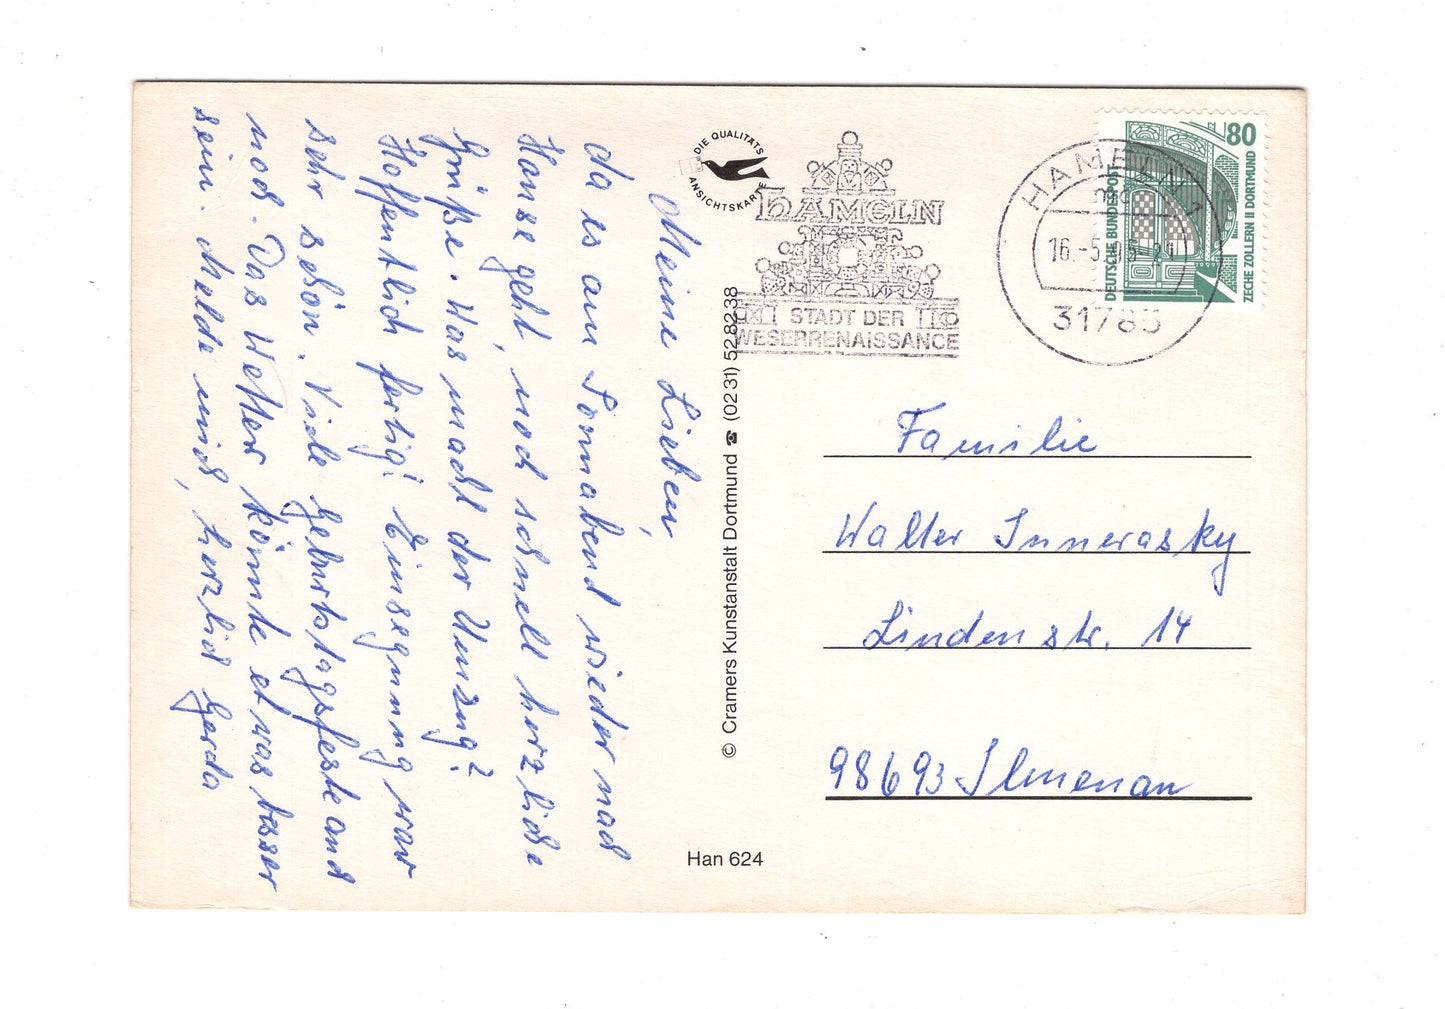 Meine Lieben,
da es am Sonnabend wieder nach
Hause geht, noch schnell herzliche
Grüße. Was macht der Umzug?
Hoffentlich fertig! Einsegnung war
sehr schön. Viele Geburtstagsfeste auch
noch. Das Wetter könnte etwas besser
sein. Melde mich, herzlich Gerda
DIE QUALITÄTS
ANSICHTSKARTE
© Cramers Kunstanstalt Dortmund ☎ (02 31) 52 82 38
Han 624
HAMELN
STADT DER
WESERRENAISSANCE
HAMELN 1
16.-5.
31785
80
DEUTSCHE BUNDESPOST
ZECHE ZOLLERN II DORTMUND
Familie
Walter Innerasky
Lindenstr. 14
98693 Ilmenau